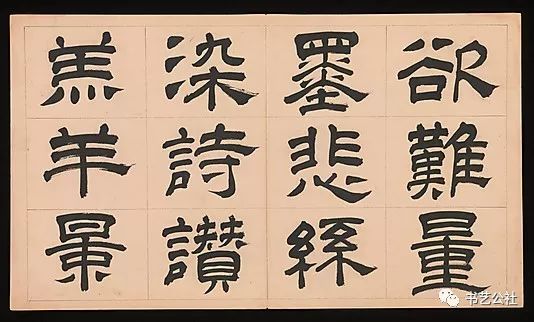 欲難量
墨悲絲
染詩讃
羔羊景
书艺公社